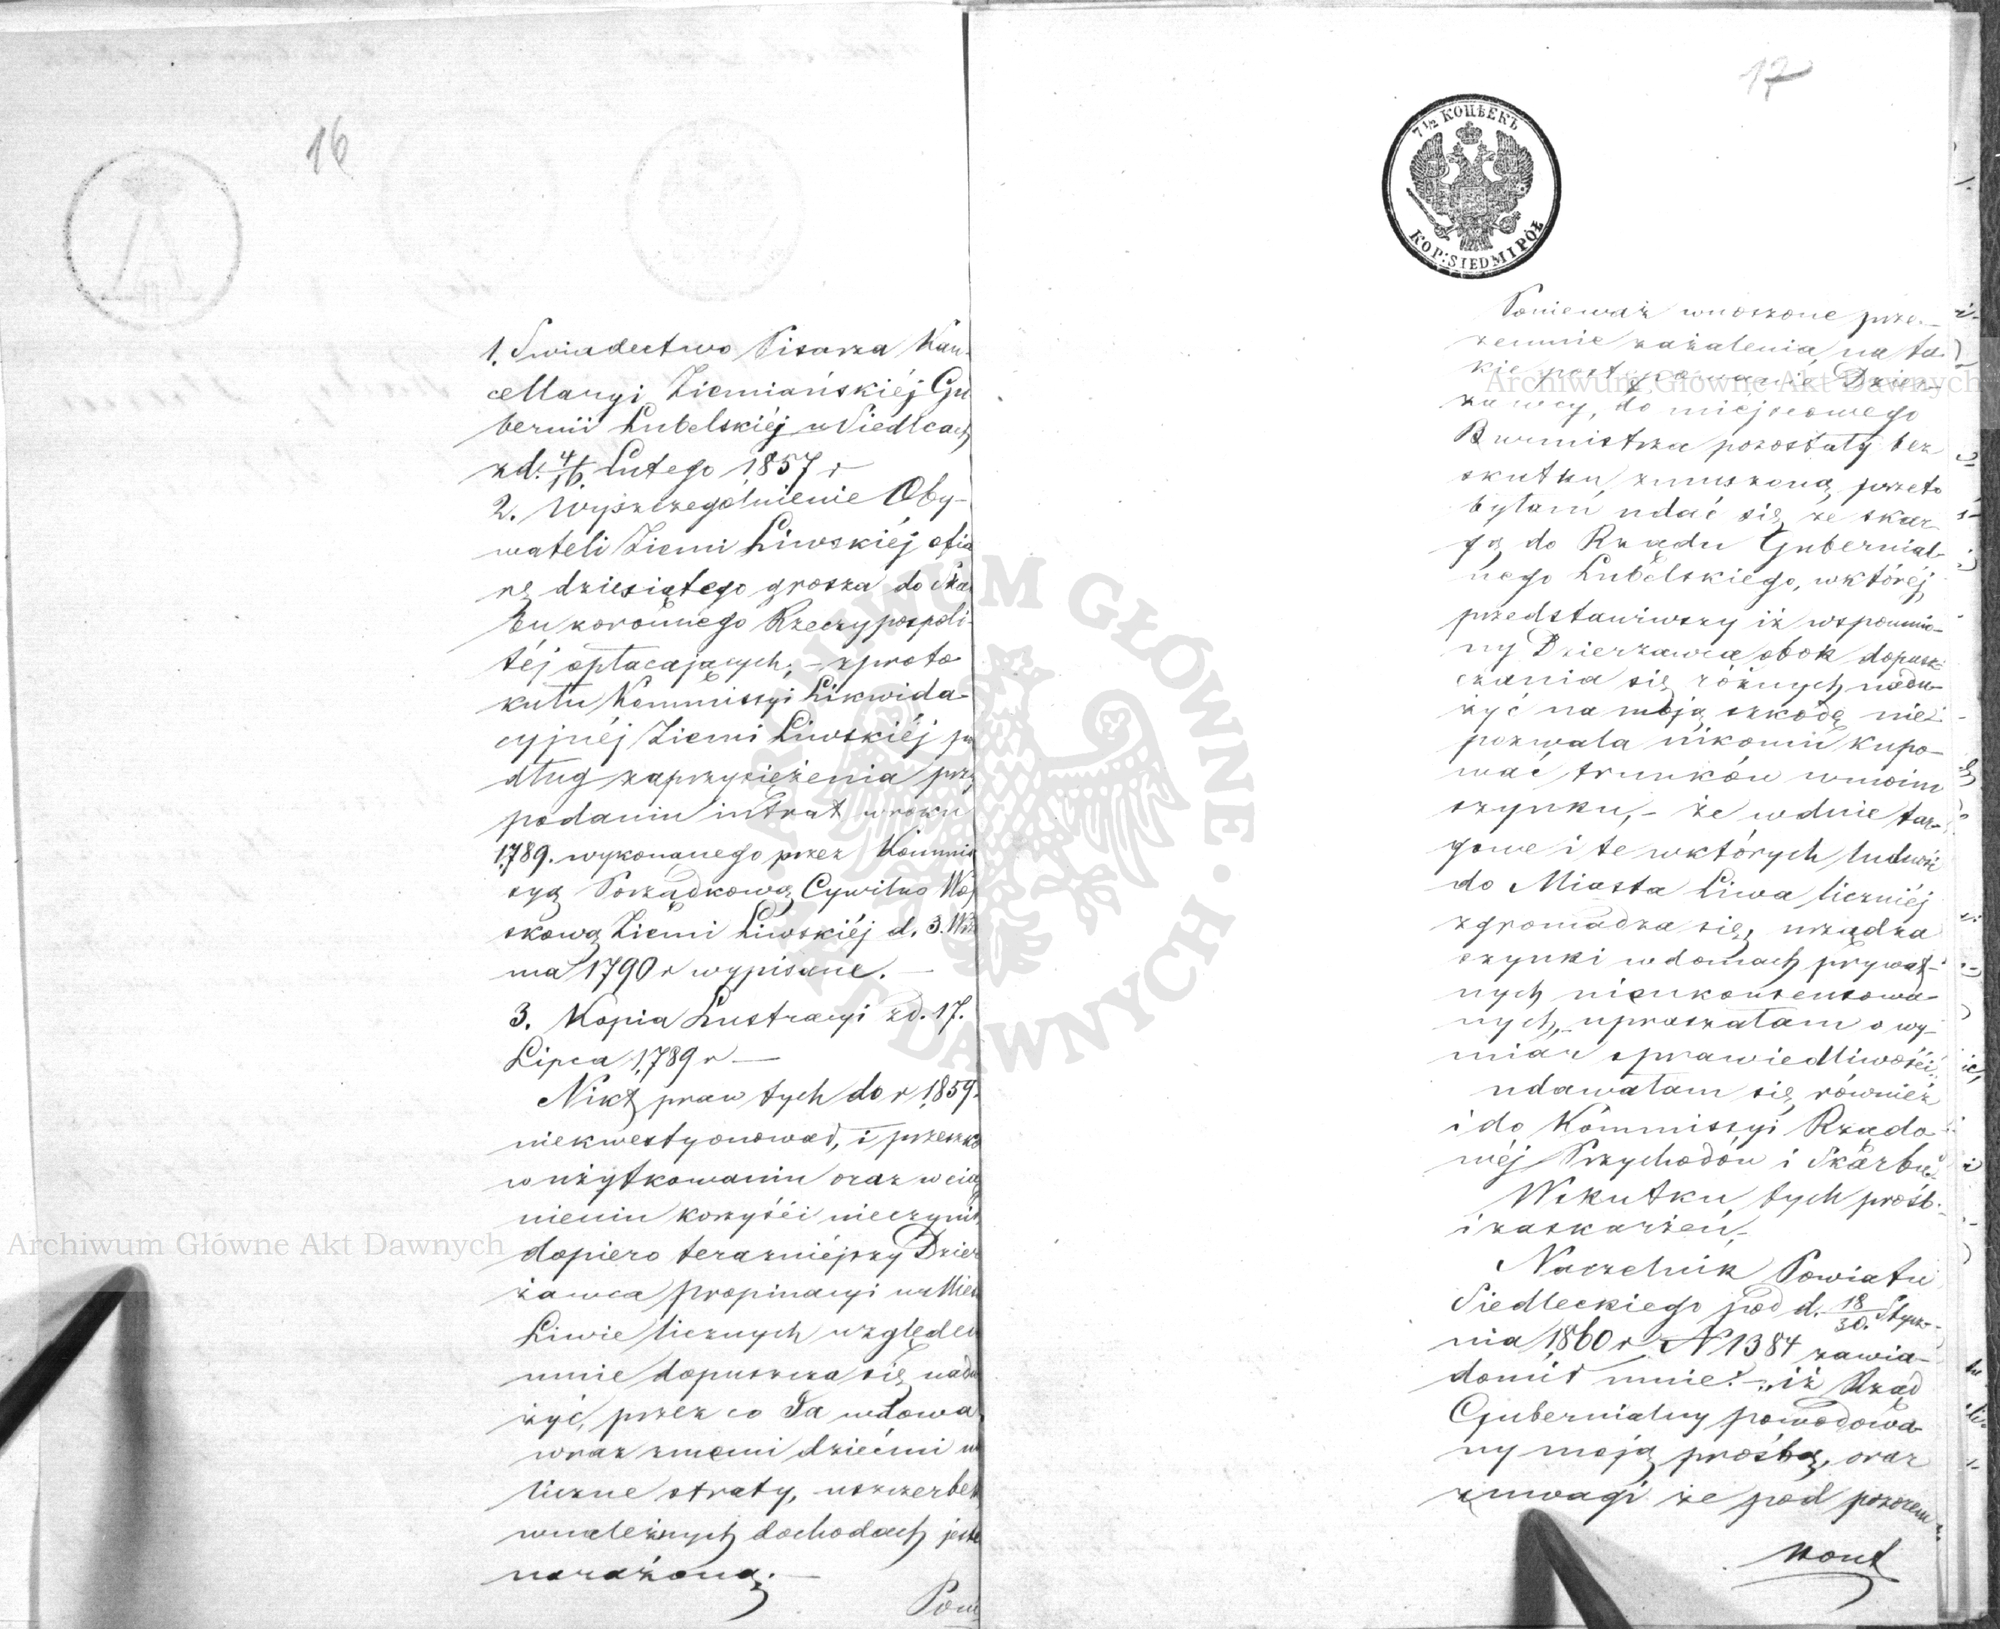 16
1. Swiadectwo Pisarza Kan-
cellaryi Ziemiańskiéj Gu
bernii Lubelskiéj w Siedlcach
z d. 4/16. Lutego 1857 r
2. Wyszczególnienie Oby-
wateli Ziemi Liwskiéj ofia
rę dziesiątego grosza do Ska
bu koronnego Rzeczypospoli-
téj opłacających, – z proto
kułu Kommissyi Likwida-
cyjnéj Ziemi Liwskiéj po
dług zaprzysiężenia przy
podaniu intrat w roku
1789. wykonanego przez Kommis
syą Porządkową Cywilno Woy
skową Ziemi Liwskiéj d. 3. Wrze
nia 1790 r wypisane. –
3. Kopia Lustracyi z d. 17.
Lipca 1789 r –
Nikt praw tych do r 1859.
niekwestyonował, i przeszko
w użytkowaniu oraz w ciąg
nieniu korzyści nieczynił
dopiero teraźniejszy Dzier
żawca propinacyi w Mieś
Liwie licznych względem
mnie dopuszcza się nadu
żyć, przez co Ja wdowa
wraz z memi dziećmi na
liczne straty, uszczerbek
w należnych dochodach jeste
narażoną. –
Poni
17
7 1/2 КОПѢЕКЪ
KOP: SIEDM I PÓŁ
Ponieważ wnoszone prze-
zemnie zażalenia na ta-
kie postępowanie Dzier-
żawcy, do miejscowego
Burmistrza pozostały bez
skutku, zmuszoną przeto
byłam udać się ze skar
gą do Rządu Gubernial-
nego Lubelskiego, w któréj
przedstawiwszy iż wspomnio-
ny Dzierżawca obok dopusz-
czania się różnych nadu-
żyć na moją szkodę nie-
pozwala nikomu kupo-
wać trunków w moim
szynku, – że w dnie tar-
gowe i te w których ludność
do Miasta Liwa liczniéj
zgromadza się, urządza
szynki w domach prywat-
nych niekonsensowa-
nych, – upraszałam o wy-
miar sprawiedliwości,
udawałam się również
i do Kommissyi Rządo-
wéj Przychodów i Skarbu.
W skutku tych prośb
i zaskarżeń, –
Naczelnik Powiatu
Siedleckiego pod d. 18/30. Stycz-
nia 1860 r N 1384 zawia-
domił mnie: – „iż Rząd
Gubernialny powodowa-
ny moją prośbą, oraz
z uwagi że pod pozorem
Kont
Archiwum Główne Akt Dawnych
Archiwum Główne Akt Dawnych
ARCHIWUM GŁÓWNE AKT DAWNYCH